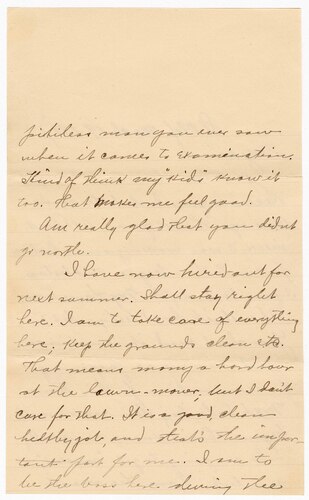 pitiless man you ever saw
when it comes to examination.
Kind of think my "Kids" know it
too. That makes me feel good.
Am really glad that you didn't
go north.
I have now hired out for
next summer. Shall stay right
here. I am to take care of everything
here; keep the grounds clean etc.
That means many a hard hour
at the lawn-mower, but I don't
care for that. It is a good, clean
helthy job, and that's the impor-
tant part for me. I am to
be the boss here during the